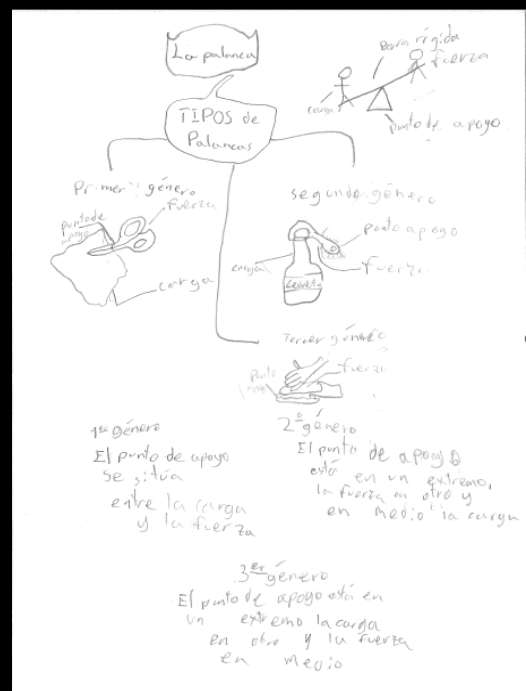 La palanca
Barra rígida
fuerza
carga
punto de apoyo
TIPOS de
Palancas
Primer género
fuerza
punto de
apoyo
carga
segundo género
punto apoyo
carga
fuerza
cerveza
Tercer género
fuerza
punto
1er Género
El punto de apoyo
se situa
entre la carga
y la fuerza
2º género
El punto de apoyo
está en un extremo,
la fuerza en otro y
en medio la carga
3er género
El punto de apoyo está en
un extremo la carga
en otro y la fuerza
en medio